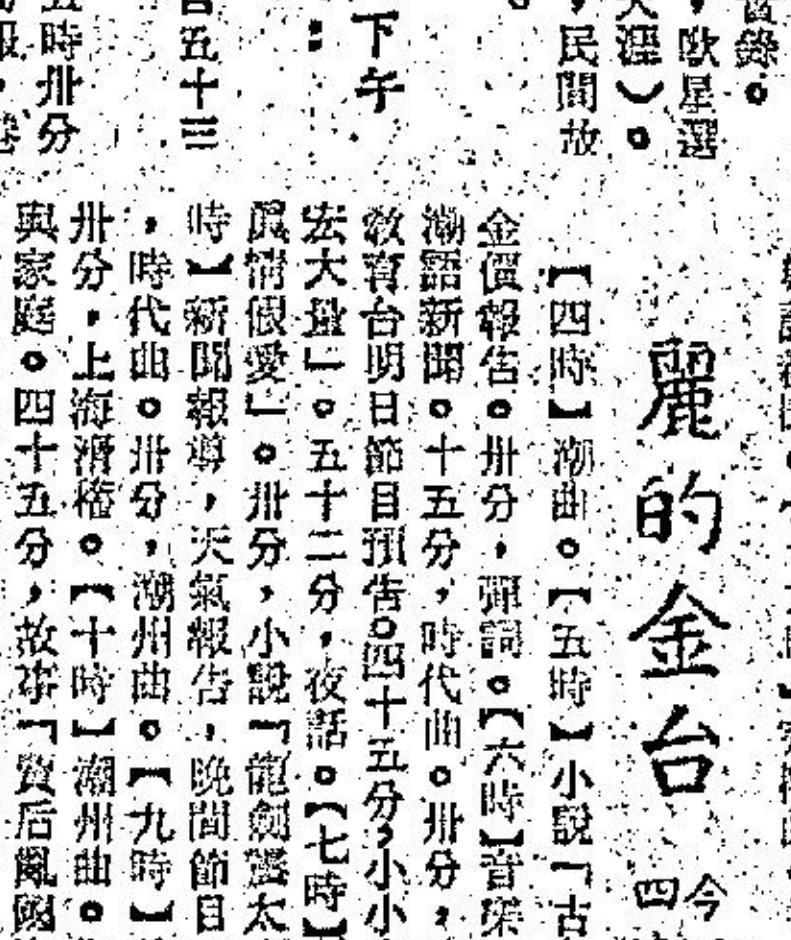 會錄。
，歐星選
天涯）。
，民間故
下午
：
百五十三
五時卅分
報，卷
麗的金台
今
四
【四時】潮曲。【五時】小說「古
金價報告。卅分，彈詞。【六時】音樂
潮語新聞。十五分，時代曲。卅分，
教育台明日節目預告。四十五分，小小
宏大量」。五十二分，夜話。【七時】
眞情假愛」。卅分，小說「龍劍震太
時】新聞報導，天氣報告，晚間節目
，時代曲。卅分，潮州曲。【九時】
卅分，上海滑稽。【十時】潮州曲。
與家庭。四十五分，故事「賈后亂國